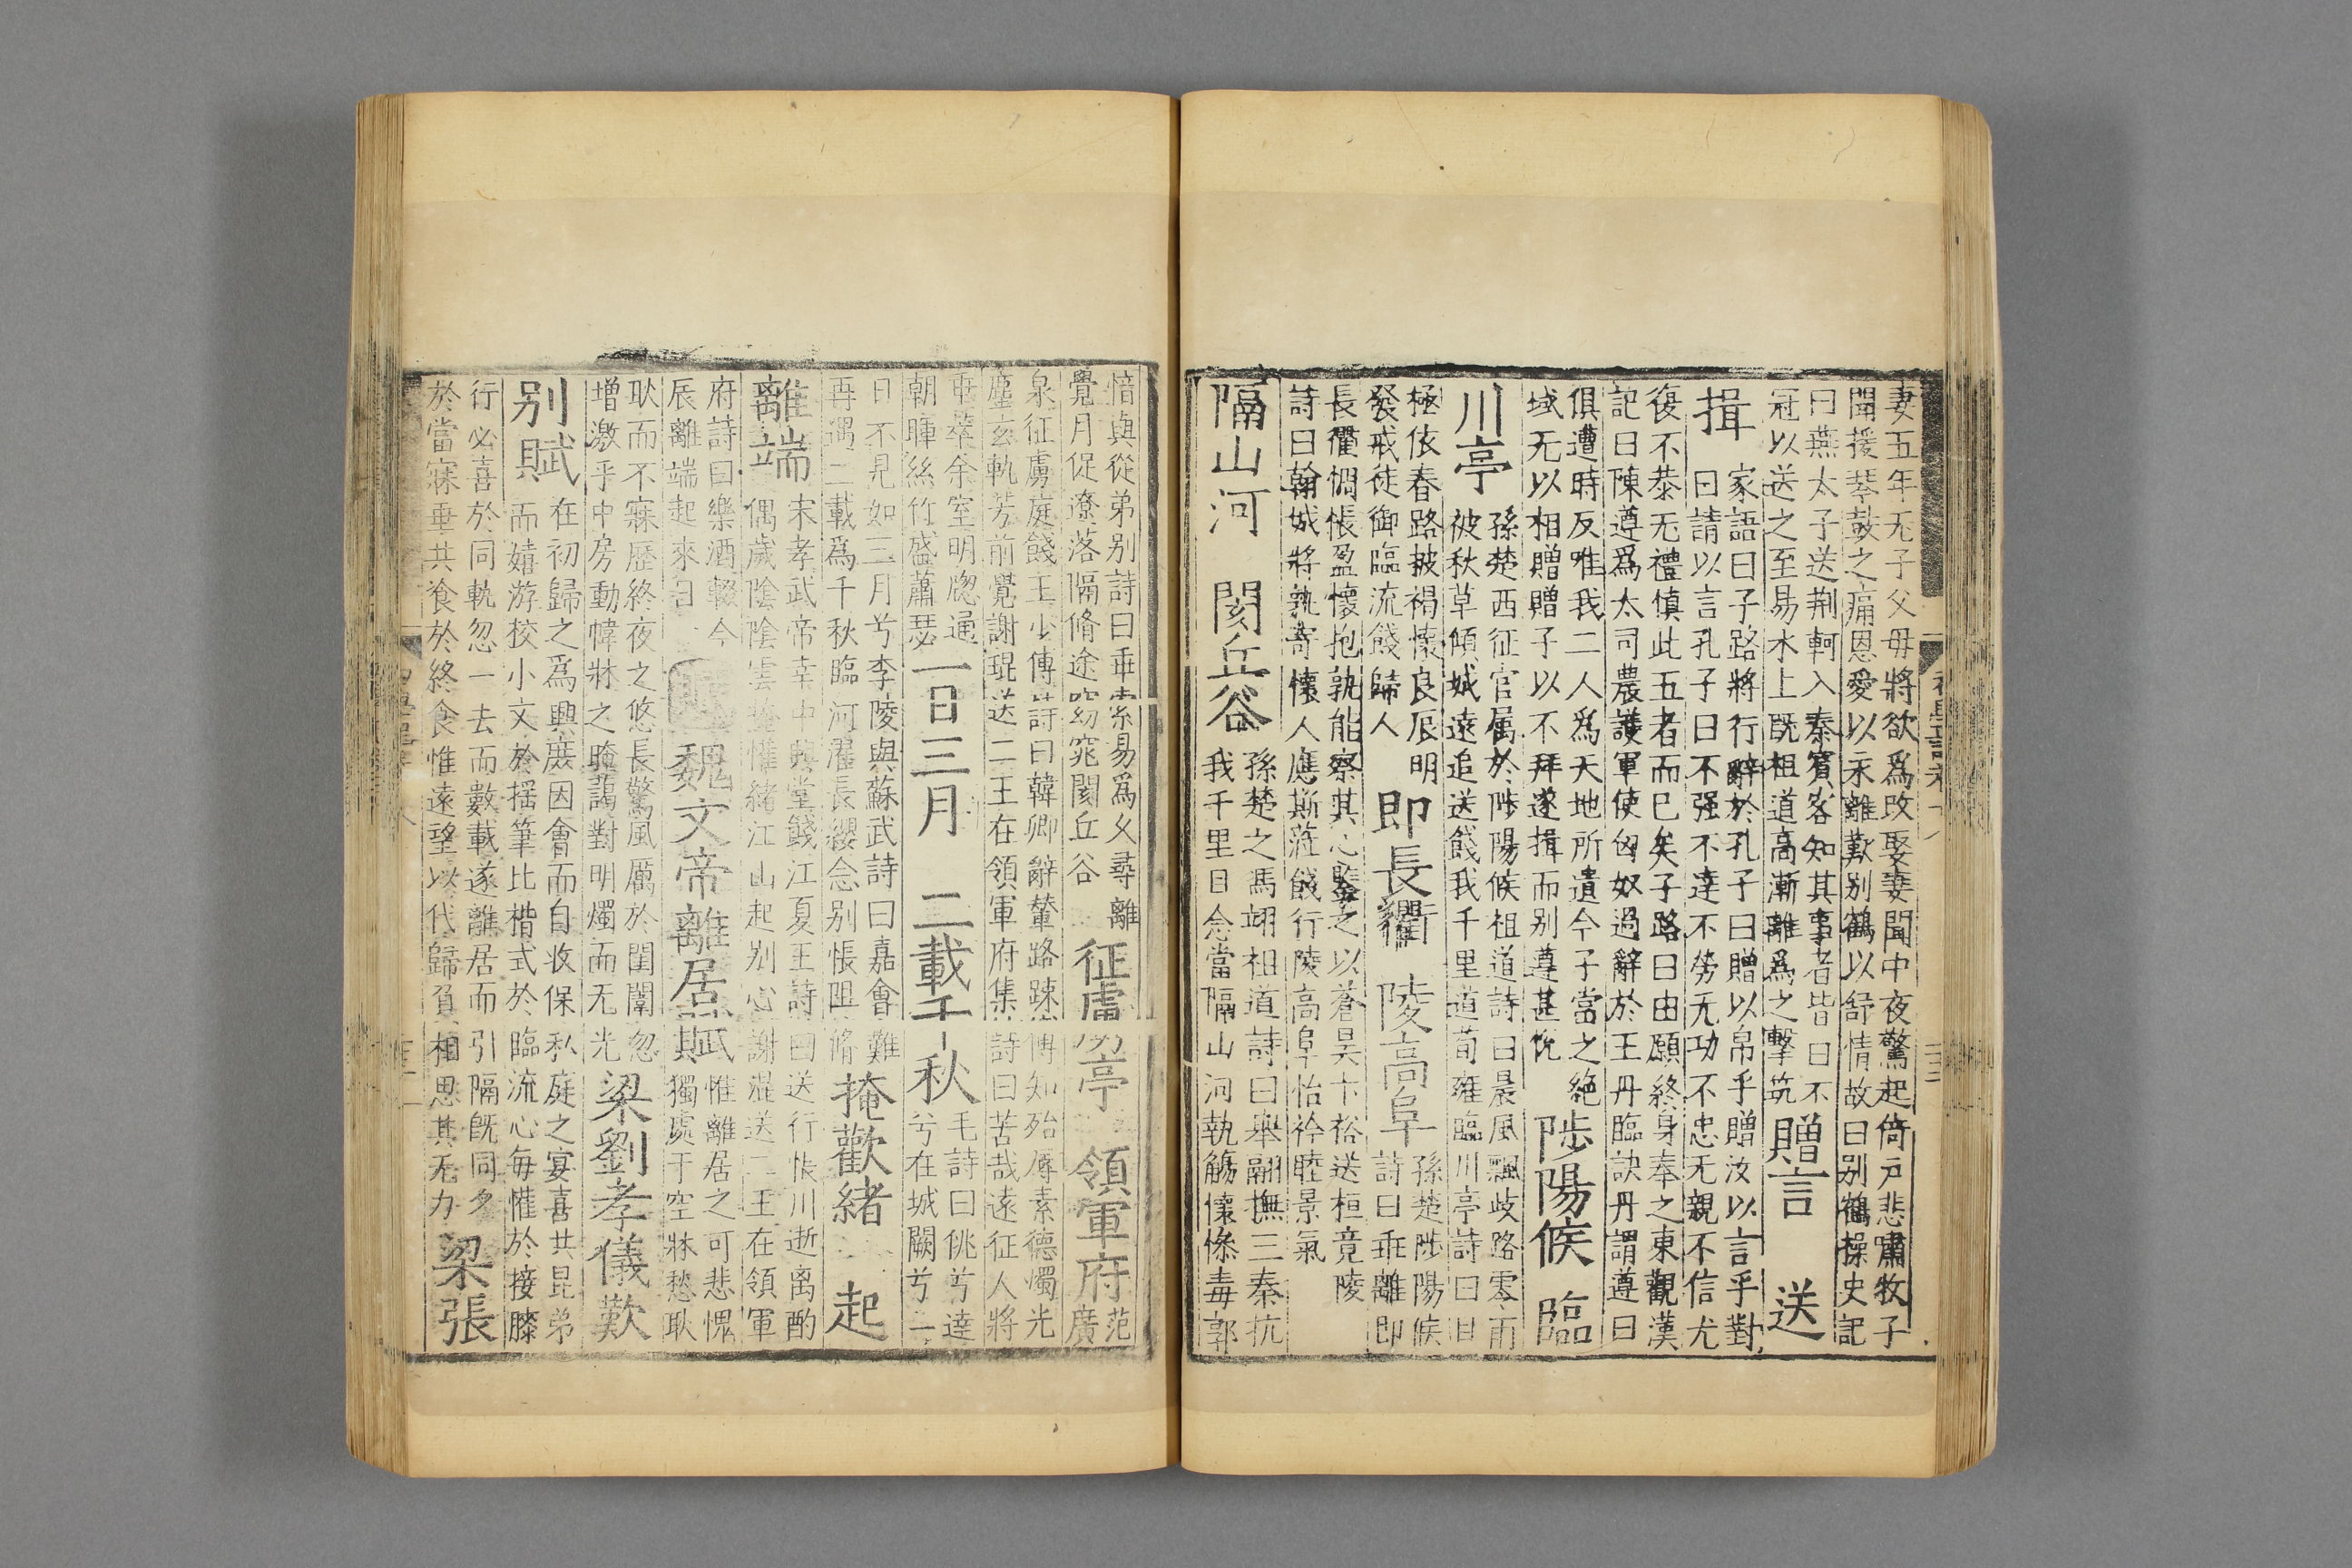 妻五年无子父母將欲爲改娶妻聞中夜驚起倚戸悲嘯牧子
聞援琴鼓之痛恩愛以永離歎别鶴以舒情故曰别鶴操史記
曰燕太子送荆軻入秦賓客知其事者皆曰不
冠以送之至易水上既祖道高漸離爲之擊筑
贈言 送
揖
家語曰子路將行辭於孔子曰贈以帛乎贈汝以言乎對
曰請以言孔子曰不强不達不勞无功不忠无親不信尤
復不恭无禮慎此五者而已矣子路曰由願終身奉之東觀漢
記曰陳遵爲太司農護軍使匈奴過辭於王丹臨訣丹謂遵曰
俱遭時反唯我二人爲天地所遺今子當之絶
域无以相贈贈子以不拜遂揖而别遵甚恱
陟陽候 臨
川亭
孫楚西征官属於陟陽候祖道詩曰晨風飄歧路零雨
被秋草傾城遠追送餞我千里道荀雍臨川亭詩曰日
極依春路披褐懷良辰明
發戒徒御臨流餞歸人
即長衢 陵高阜
孫楚陟陽候
詩曰乖離即
長衢惆悵盈懷抱孰能察其心鑒之以蒼昊卞裕送桓竟陵
詩曰翰城將孰寄懷人應斯蒞餞行陵高阜怡衿睦景氣
隔山河 閡丘谷
孫楚之馮翊祖道詩曰舉翮撫三秦抗
我千里目念當隔山河執觴懷慘毒郭
愔與從弟别詩曰乖索易爲久尋離
覺月促遼落隔脩途窈窕閡丘谷
征虜亭 領軍府
范
廣
泉征虜庭餞王少傅詩曰韓卿辭輦路踈傅知殆辱素德燭光
塵玄軌芳前覺謝琨送二王在領軍府集詩曰苦哉遠征人將
乖萃余室明牕通
朝暉絲竹盛蕭瑟
一日三月 二載千秋
毛詩曰佻兮達
兮在城闕兮一
日不見如三月兮李陵與蘇武詩曰嘉會難
再遇二載爲千秋臨河濯長纓念别悵阻脩
掩歡緒 起
離端
宋孝武帝幸中興堂餞江夏王詩曰送行悵川逝离酌
偶歲陰陰雲惟緒江山起别心謝混送二王在領軍
府詩曰樂酒輟今
辰離端起來日
賦
魏文帝離居賦
惟離居之可悲愧
其獨處于空牀愁耿
耿而不寐歷終夜之悠長驚風厲於閨闈忽
增激乎中房動幃牀之晻藹對明燭而无光
梁劉孝儀歎
别賦
在初歸之爲興庶因會而自收保私庭之宴喜共昆弟
而嬉游校小文於摇筆比楷式於臨流心每惟於接膝
行必喜於同軌忽一去而數載遂離居而引隔既同夕
於當寐垂共飡於終食惟遠望以代歸負相思其无力
梁張